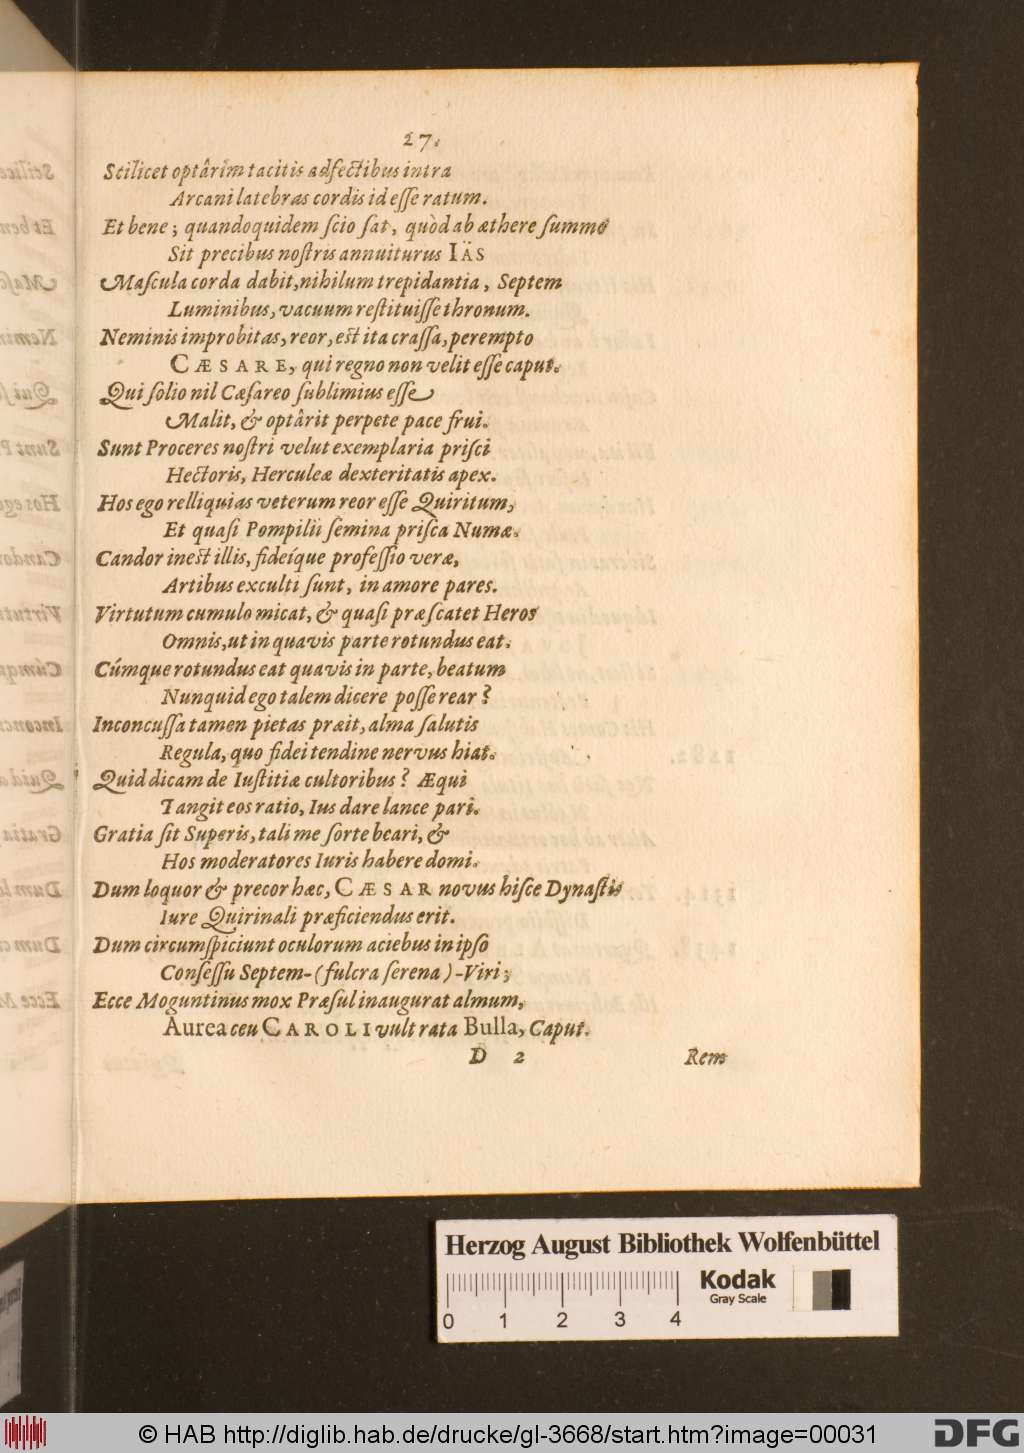 27.
Scilicet optârim tacitis adfectibus intra
Arcani latebras cordis id esse ratum.
Et bene; quandoquidem scio sat, quòd ab æthere summo
Sit precibus nostris annuiturus IÄS
Mascula corda dabit, nihilum trepidantia, Septem
Luminibus, vacuum restituisse thronum.
Neminis improbitas, reor, est ita crassa, perempto
CÆSARE, qui regno non velit esse caput.
Qui solio nil Cæsareo sublimius esse
Malit, & optârit perpete pace frui.
Sunt Proceres nostri velut exemplaria prisci
Hectoris, Herculeæ dexteritatis apex.
Hos ego relliquias veterum reor esse Quiritum,
Et quasi Pompilii semina prisca Numæ.
Candor inest illis, fideíque professio veræ,
Artibus exculti sunt, in amore pares.
Virtutum cumulo micat, & quasi præscatet Heros
Omnis, ut in quavis parte rotundus eat.
Cúmque rotundus eat quavis in parte, beatum
Nunquid ego talem dicere posse rear?
Inconcussa tamen pietas præit, alma salutis
Regula, quo fidei tendine nervus hiat.
Quid dicam de Iustitiæ cultoribus? Æqui
Tangit eos ratio, Ius dare lance pari.
Gratia sit Superis, tali me sorte beari, &
Hos moderatores Iuris habere domi.
Dum loquor & precor hæc, CÆSAR novus hisce Dynastis
Iure Quirinali præficiendus erit.
Dum circumspiciunt oculorum aciebus in ipso
Consessu Septem-(fulcra serena)-Viri;
Ecce Moguntinus mox Præsul inaugurat almum,
Aurea ceu CAROLI vult rata Bulla, Caput.
D 2 Rem
Herzog August Bibliothek Wolfenbüttel
Kodak
Gray Scale
0 1 2 3 4
© HAB http://diglib.hab.de/drucke/gl-3668/start.htm?image=00031
DFG